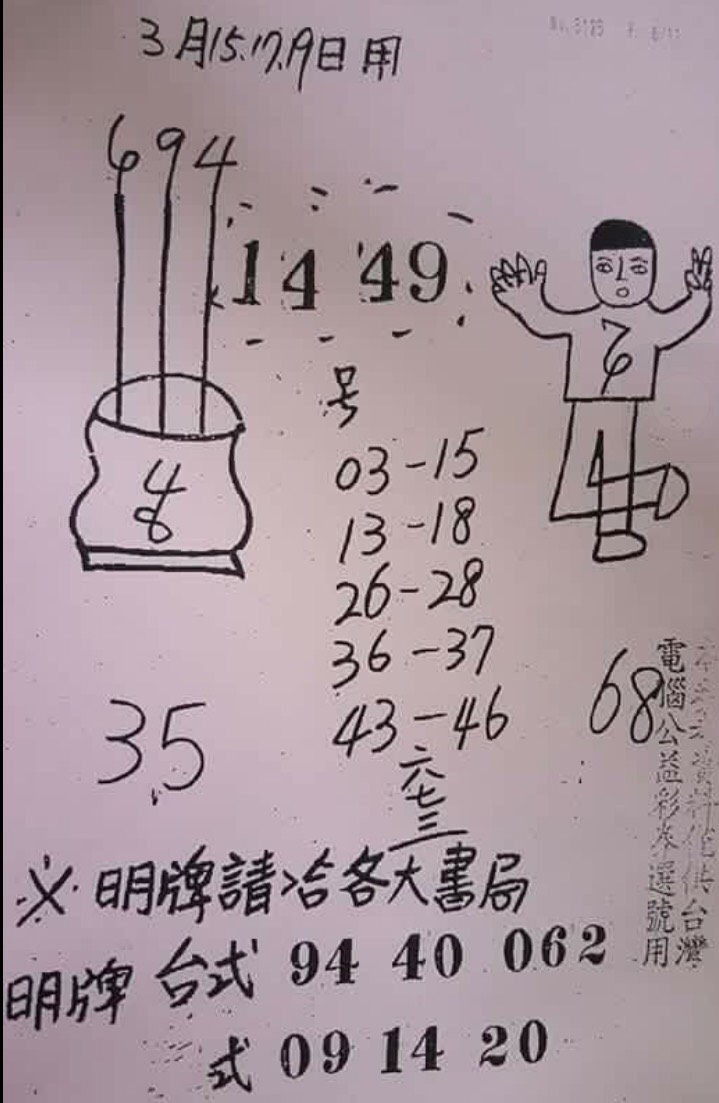 3月15.17.19日用
694
14 49
号
7
6
4
8
1
03-15
13-18
26-28
36-37
43-46
六
七
三
35
68
電腦公益彩券選號用
資料僅供台灣
※ 明牌請洽各大書局
明牌 台式 94 40 062
式 09 14 20